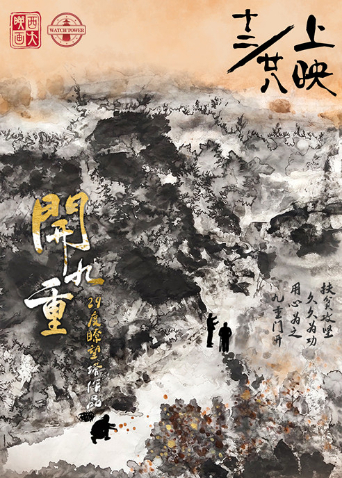 西大
映画
WATCH TOWER
十二/廿八
上映
開九重
度瞭望塔作品
扶贫攻坚
久久为功
用心为之
九重门开